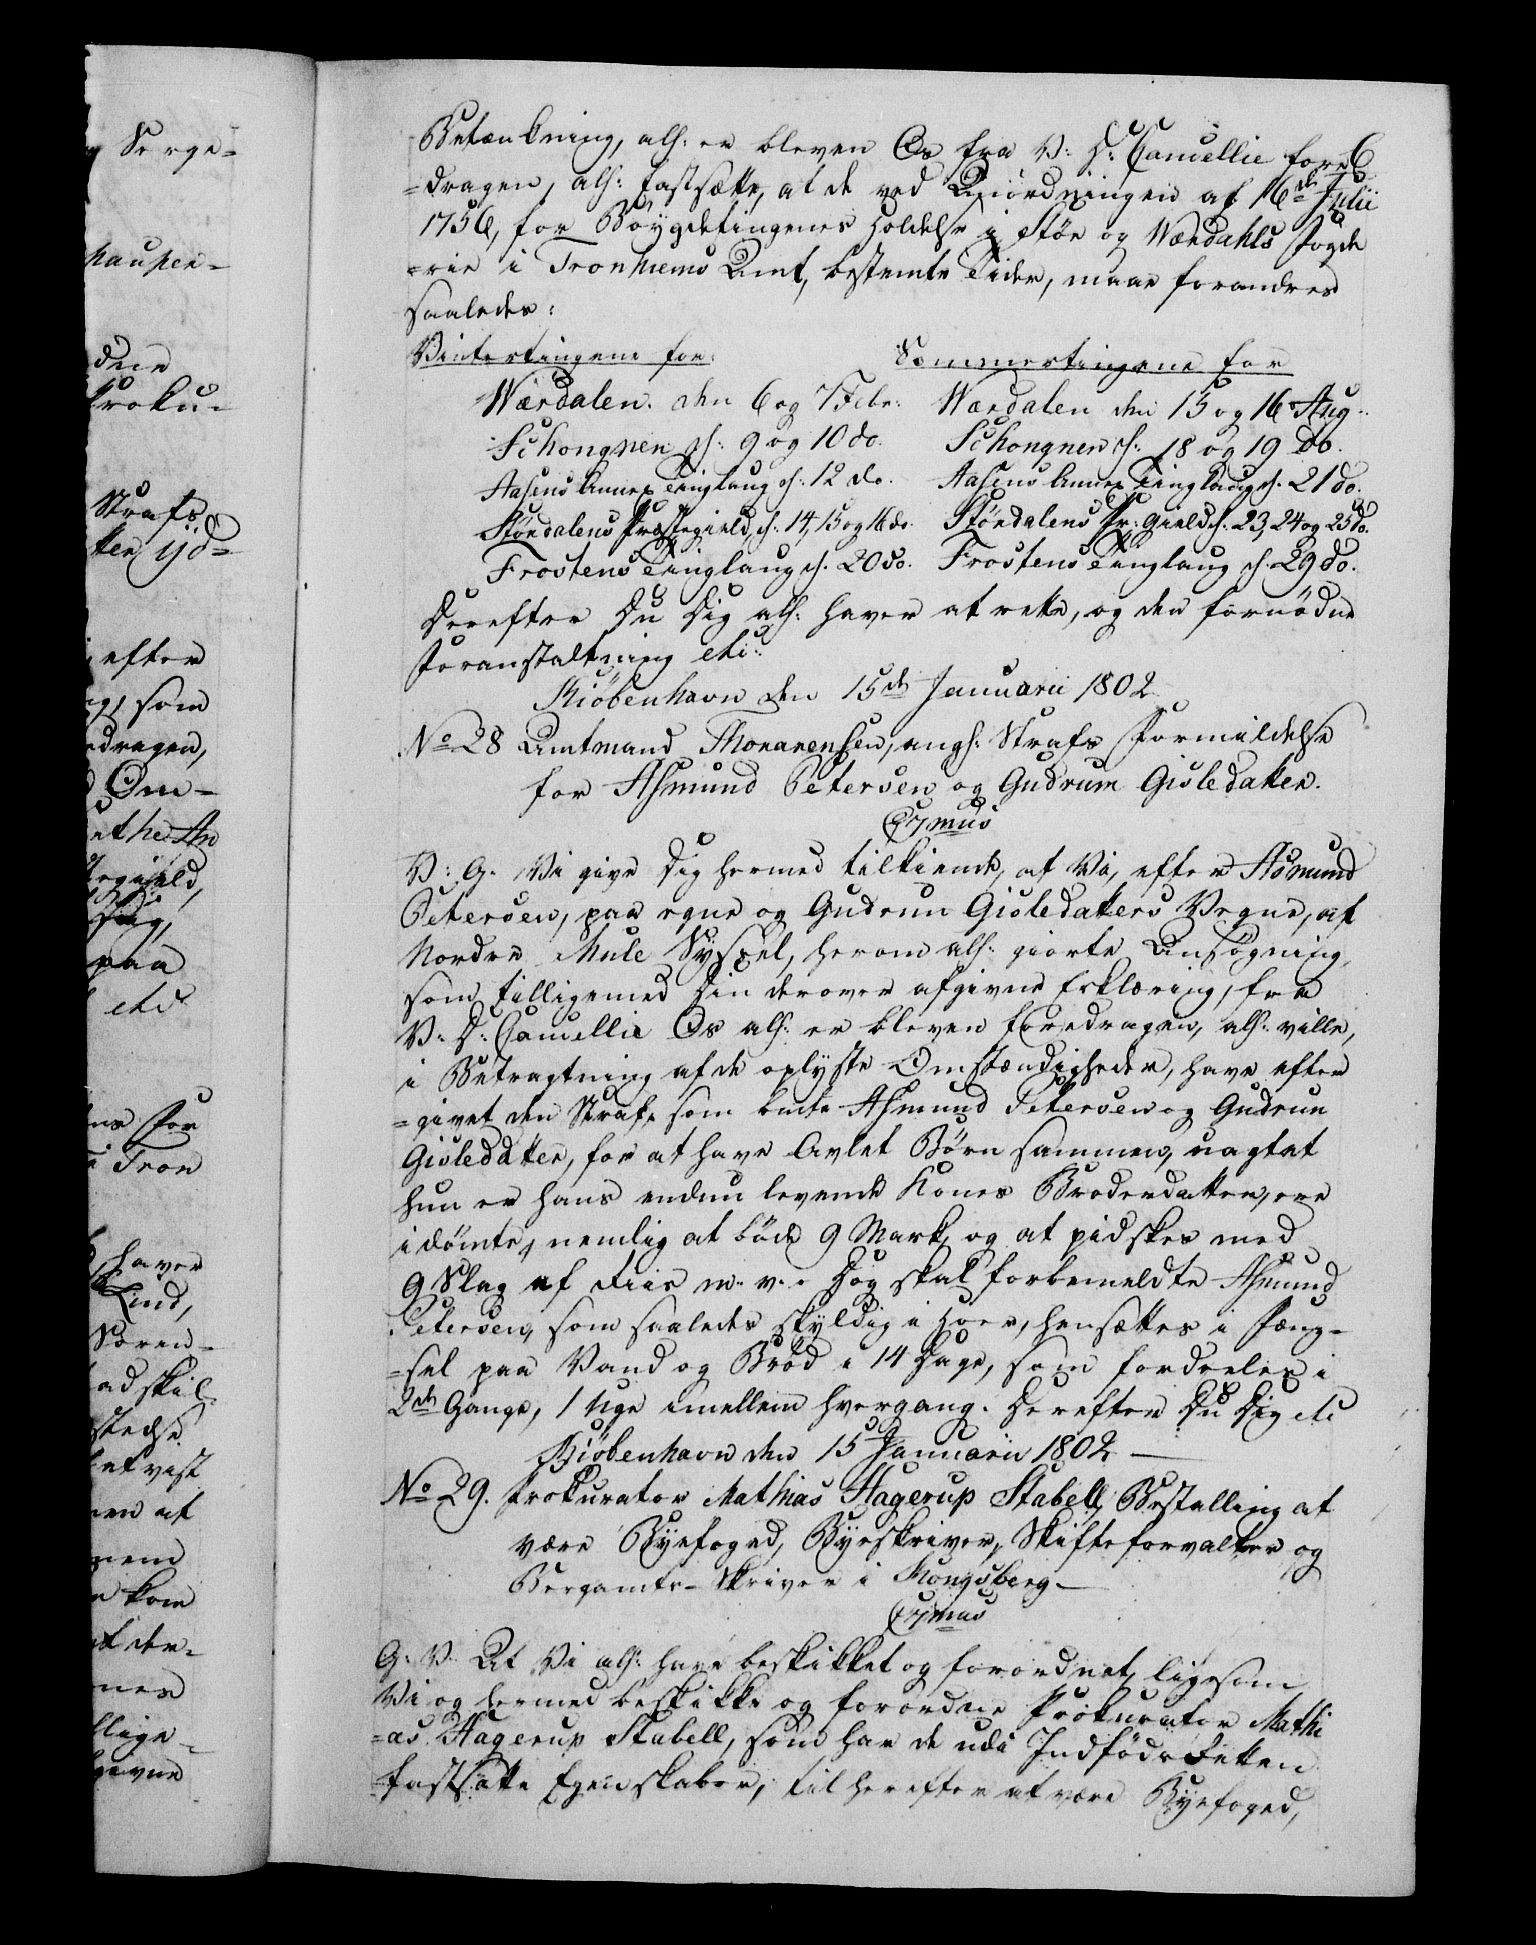 Betænkning, alh: er bleven Os fra V: D: Cancellie fore- 6
=dragen, alh: fastsætte, at de ved Anordningen af 16de Julii
1756, for Böygdetingenes Holdelse i Stör og Wærdahls Fogde
=rie i Tronhiems Amt, bestemte Tider, maae forandres
saaledes:
Vintertingene for:
Sommertingene for
Wærdalen. den 6 og 7 Febr:
Wærdalen den 15 og 16 Aug.
Schongnen d: 9 og 10 do.
Schongnen d: 18 og 19 do.
Aasens Annex Tinglaug d: 12 do.
Aasens Annex Tinglaug d. 21 do.
Stördalens Præstegield, d. 14, 15 og 16 do.
Stördalens Pr: Gield d: 23, 24 og 25 do.
Frostens Tinglaug d. 20 do.
Frostens Tinglaug d. 29 do.
Derefter Du Dig alh: haver at rette, og den fornödne
Foranstaltning etc:
Kiöbenhavn den 15de Januarii 1802
No 28 Amtmand Thoranensen, angh: Strafs Formildelse
for Asmund Petersen og Gudrum Gisledatter.
C7mus
V: G. Vi give Dig hermed tilkiende, at Vi, efter Asmund
Petersen, paa egne og Gudrun Gisledatters Vegne, af
Nordre Mule Syssel, herom alh: giorte Ansögning,
som tilligemed Din derover afgivne Erklæring, fra
V: D: Cancellie Os alh: er bleven foredragen, alh: ville,
i Betragtning af de oplyste Omstændigheder, have efter
=givet den Straf, som bemte Asmund Petersen og Gudrun
Gisledatter, for at have Avlet Börn sammen, uagtet
hun er hans endnu levende Kones Broderdatter, ere
idömte, nemlig at böde 9 Mark, og at pidskes med
9 Slag af Riis m. v.. Dog skal forbemeldte Asmund
Petersen, som saaledes skyldig i Hoer, hensættes i Fæng-
=sel paa Vand og Bröd i 14 Dage, som fordeeles i
2de Gange, 1 Uge imellem hvergang. Derefter Du Dig etc
Kiöbenhavn den 15 Januarii 1802
No 29. Prokurator Mathias Hagerup Stabell, Bestalling at
være Byefoged, Byeskriver, Skifteforvalter og
Bergamts-Skriver i Kongsberg.
C7mus
G: V. At Vi alh: have beskikket og forordnet, ligesom
Vi og hermed beskikke og forordne Prokurator Mathi
=as Hagerup Stabell, som har de udi Indföds Retten
fastsatte Egenskaber, til herefter at være Byefoged,